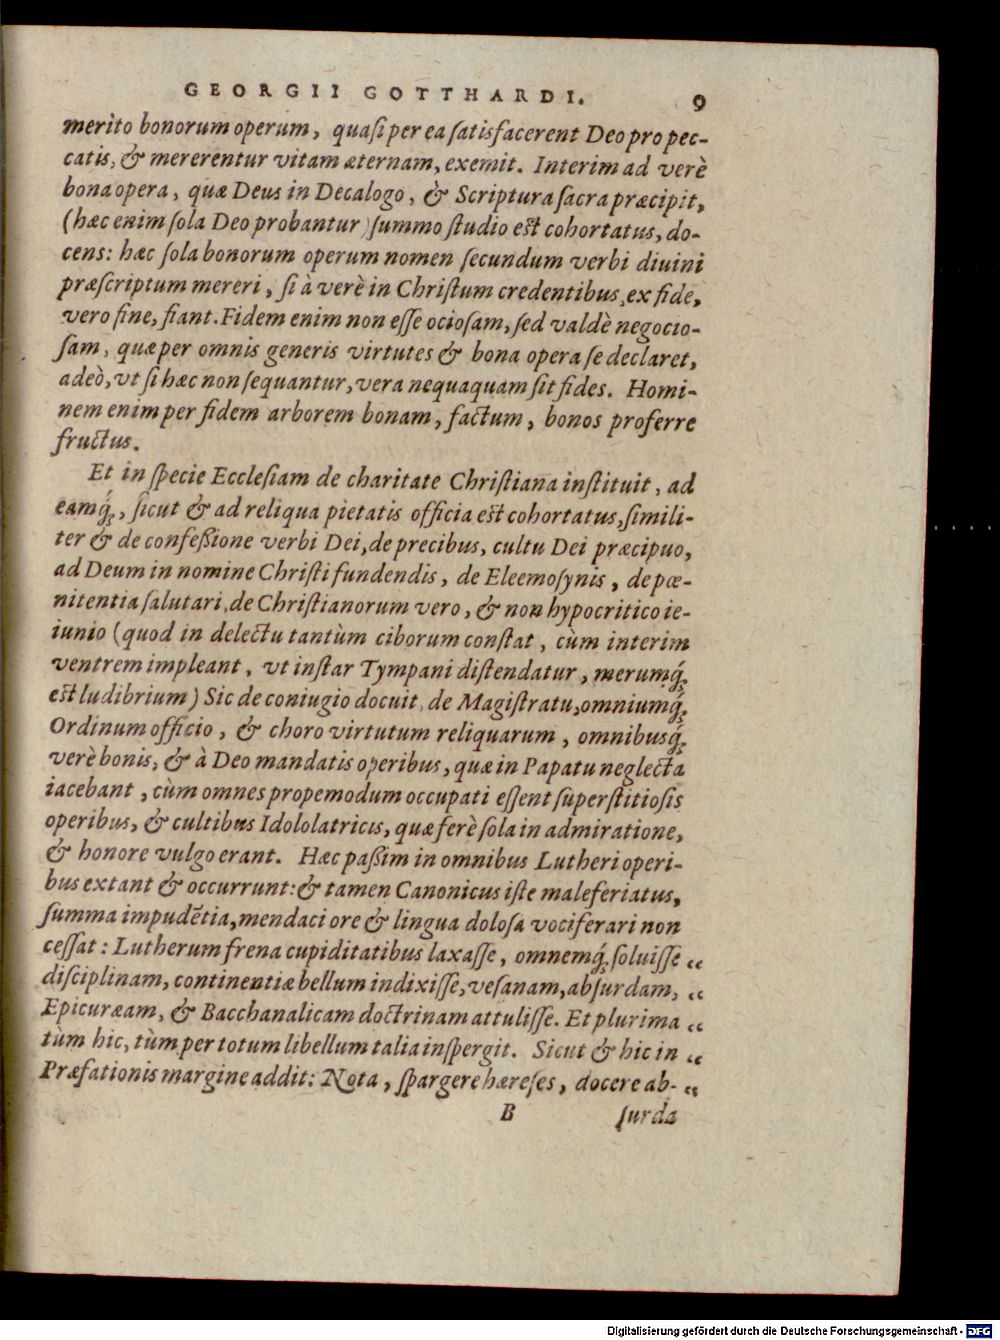 GEORGII GOTTHARDI. 9
merito bonorum operum, quaſi per ea ſatisfacerent Deo pro pec-
catis, & mererentur vitam æternam, exemit. Interim ad verè
bona opera, quæ Deus in Decalogo, & Scriptura ſacra præcipit,
(hæc enim ſola Deo probantur) ſummo ſtudio eſt cohortatus, do-
cens: hæc ſola bonorum operum nomen ſecundum verbi diuini
præſcriptum mereri, ſi à verè in Chriſtum credentibus, ex fide,
vero fine, fiant. Fidem enim non eſſe ocioſam, ſed valdè negocio-
ſam, quæ per omnis generis virtutes & bona opera ſe declaret,
adeò, vt ſi hæc non ſequantur, vera nequaquam ſit fides. Homi-
nem enim per fidem arborem bonam, factum, bonos proferre
fructus.
Et in ſpecie Eccleſiam de charitate Chriſtiana inſtituit, ad
eamq́;, ſicut & ad reliqua pietatis officia eſt cohortatus, ſimili-
ter & de confeßione verbi Dei, de precibus, cultu Dei præcipuo,
ad Deum in nomine Chriſti fundendis, de Eleemoſynis, de pœ-
nitentia ſalutari, de Chriſtianorum vero, & non hypocritico ie-
iunio (quod in delectu tantùm ciborum conſtat, cùm interim
ventrem impleant, vt inſtar Tympani diſtendatur, merumq́;
eſt ludibrium) Sic de coniugio docuit, de Magiſtratu, omniumq́;
Ordinum officio, & choro virtutum reliquarum, omnibusq́;
verè bonis, & à Deo mandatis operibus, quæ in Papatu neglecta
iacebant, cùm omnes propemodum occupati eſſent ſuperſtitioſis
operibus, & cultibus Idololatricis, quæ ferè ſola in admiratione,
& honore vulgo erant. Hæc paßim in omnibus Lutheri operi-
bus extant & occurrunt: & tamen Canonicus iſte maleferiatus,
ſumma impudẽtia, mendaci ore & lingua doloſa vociferari non
ceſſat: Lutherum frena cupiditatibus laxaſſe, omnemq́; ſoluiſſe “
diſciplinam, continentiæ bellum indixiſſe, veſanam, abſurdam, “
Epicuræam, & Bacchanalicam doctrinam attuliſſe. Et plurima “
tùm hic, tùm per totum libellum talia inſpergit. Sicut & hic in “
Præfationis margine addit: Nota, ſpargere hæreſes, docere ab- “
B ſurda
Digitalisierung gefördert durch die Deutsche Forschungsgemeinschaft - DFG